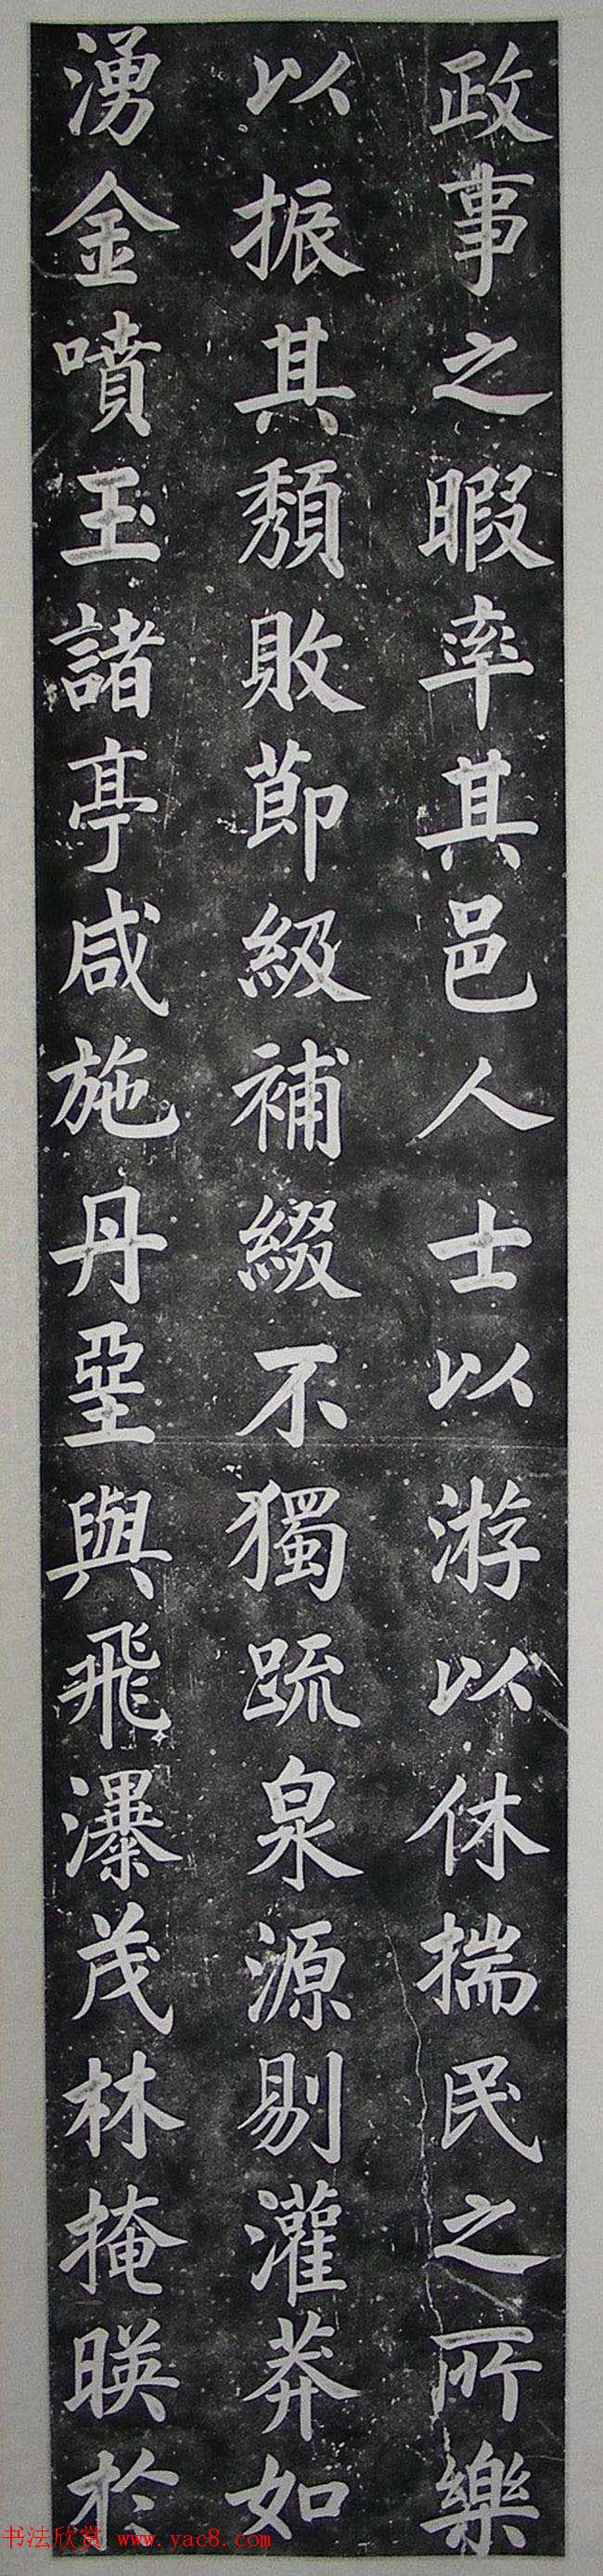 政事之暇率其邑人士以游以休揣民之所樂
以振其頹敗節級補綴不獨疏泉源剔灌莽如
湧金噴玉諸亭咸施丹堊與飛瀑茂林掩暎於
书法欣赏 www.yac8.com